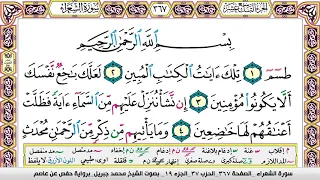 الجزء التاسع عشر ٣٦٧ سورة الشعراء
بِسْمِ ٱللَّهِ ٱلرَّحْمَٰنِ ٱلرَّحِيمِ
طسٓمٓ ١ تِلْكَ ءَايَٰتُ ٱلْكِتَٰبِ ٱلْمُبِينِ ٢ لَعَلَّكَ بَٰخِعٌ نَّفْسَكَ
أَلَّا يَكُونُوا۟ مُؤْمِنِينَ ٣ إِن نَّشَأْ نُنَزِّلْ عَلَيْهِم مِّنَ ٱلسَّمَآءِ ءَايَةً فَظَلَّتْ
أَعْنَٰقُهُمْ لَهَا خَٰضِعِينَ ٤ وَمَا يَأْتِيهِم مِّن ذِكْرٍ مِّنَ ٱلرَّحْمَٰنِ مُحْدَثٍ
سورة الشعراء . الصفحة ٣٦٧ . الحزب ٣٧ . الجزء ١٩ . بصوت الشيخ محمد جبريل . برواية حفص عن عاصم